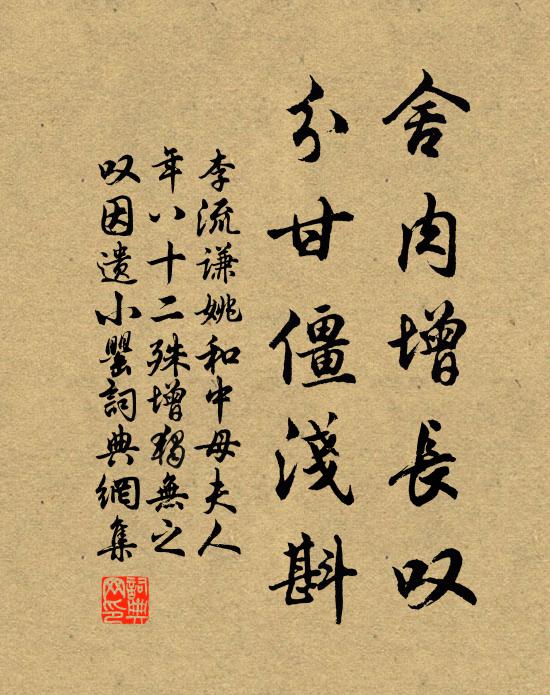 舍肉增長叹
分甘僵淺斟
李流謙姚和中母夫人
年八十二殊增猲無之
叹因遗小罂詞典網集
詞典网印